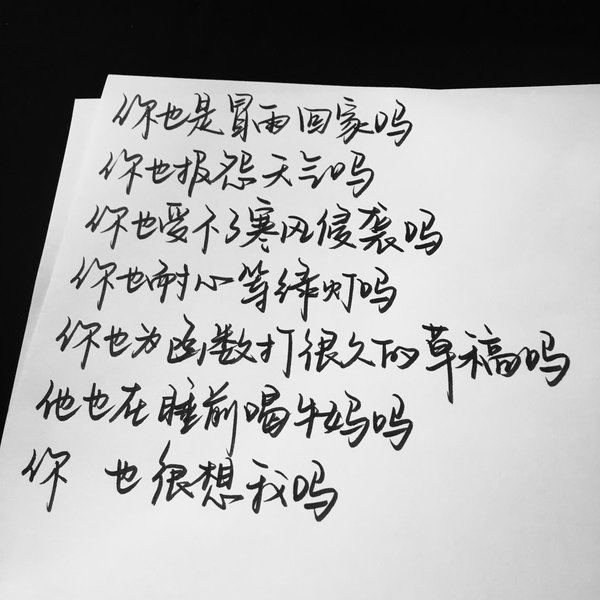 你也是冒雨回家吗
你也报怨天气吗
你也受不了寒风侵袭吗
你也耐心等绿灯吗
你也为函数打很久的草稿吗
他也在睡前喝牛妈吗
你 也很想我吗